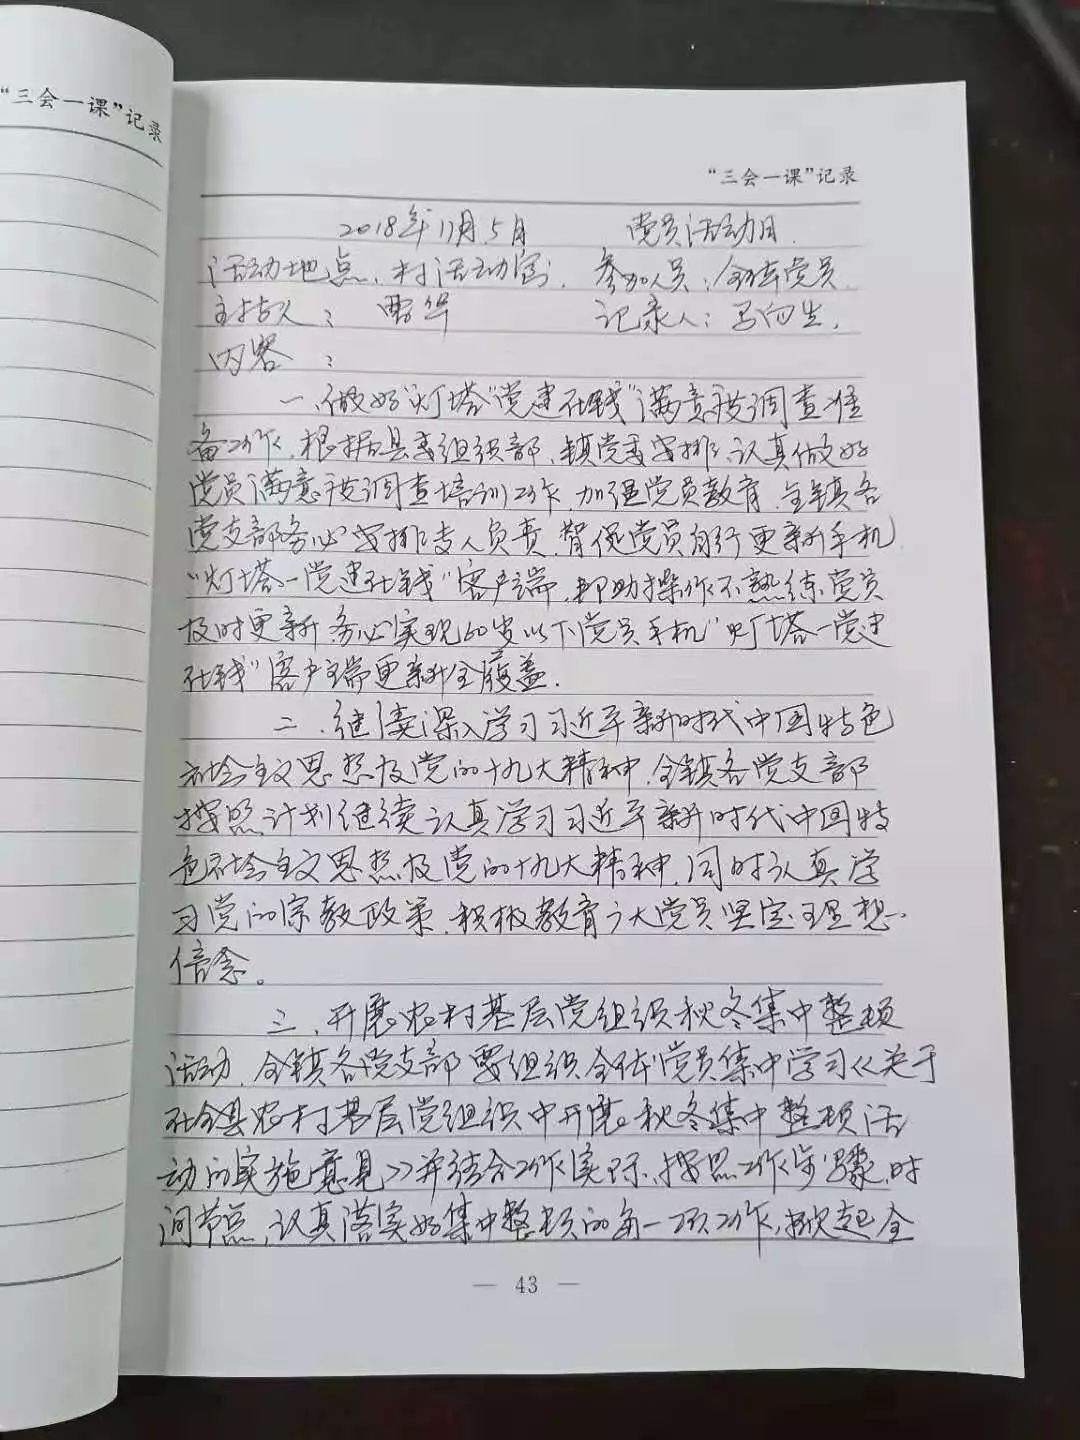 “三会一课”记录
“三会一课”记录
2018年11月5日 党员活动日
活动地点：村活动室 参加人员：全体党员
主持人： 曹华 记录人：马向生
内容：
一、做好“灯塔”党建在线”满意度调查准
备工作。根据县委组织部、镇党委安排，认真做好
党员满意度调查培训工作，加强党员教育，全镇各
党支部务必安排专人负责，督促党员自行更新手机
“灯塔—党建在线”客户端，帮助操作不熟练党员
及时更新，务必实现60岁以下党员手机“灯塔—党建
在线”客户端更新全覆盖。
二、继续深入学习习近平新时代中国特色
社会主义思想及党的十九大精神，全镇各党支部
按照计划继续认真学习习近平新时代中国特
色社会主义思想及党的十九大精神，同时认真学
习党的宗教政策，积极教育广大党员坚定理想
信念。
三、开展农村基层党组织秋冬集中整顿
活动，全镇各党支部要组织全体党员集中学习《关于
在全县农村基层党组织中开展秋冬集中整顿活
动的实施意见》并结合工作实际，按照工作步骤，时
间节点，认真落实好集中整顿的每一项工作，掀起全
— 43 —